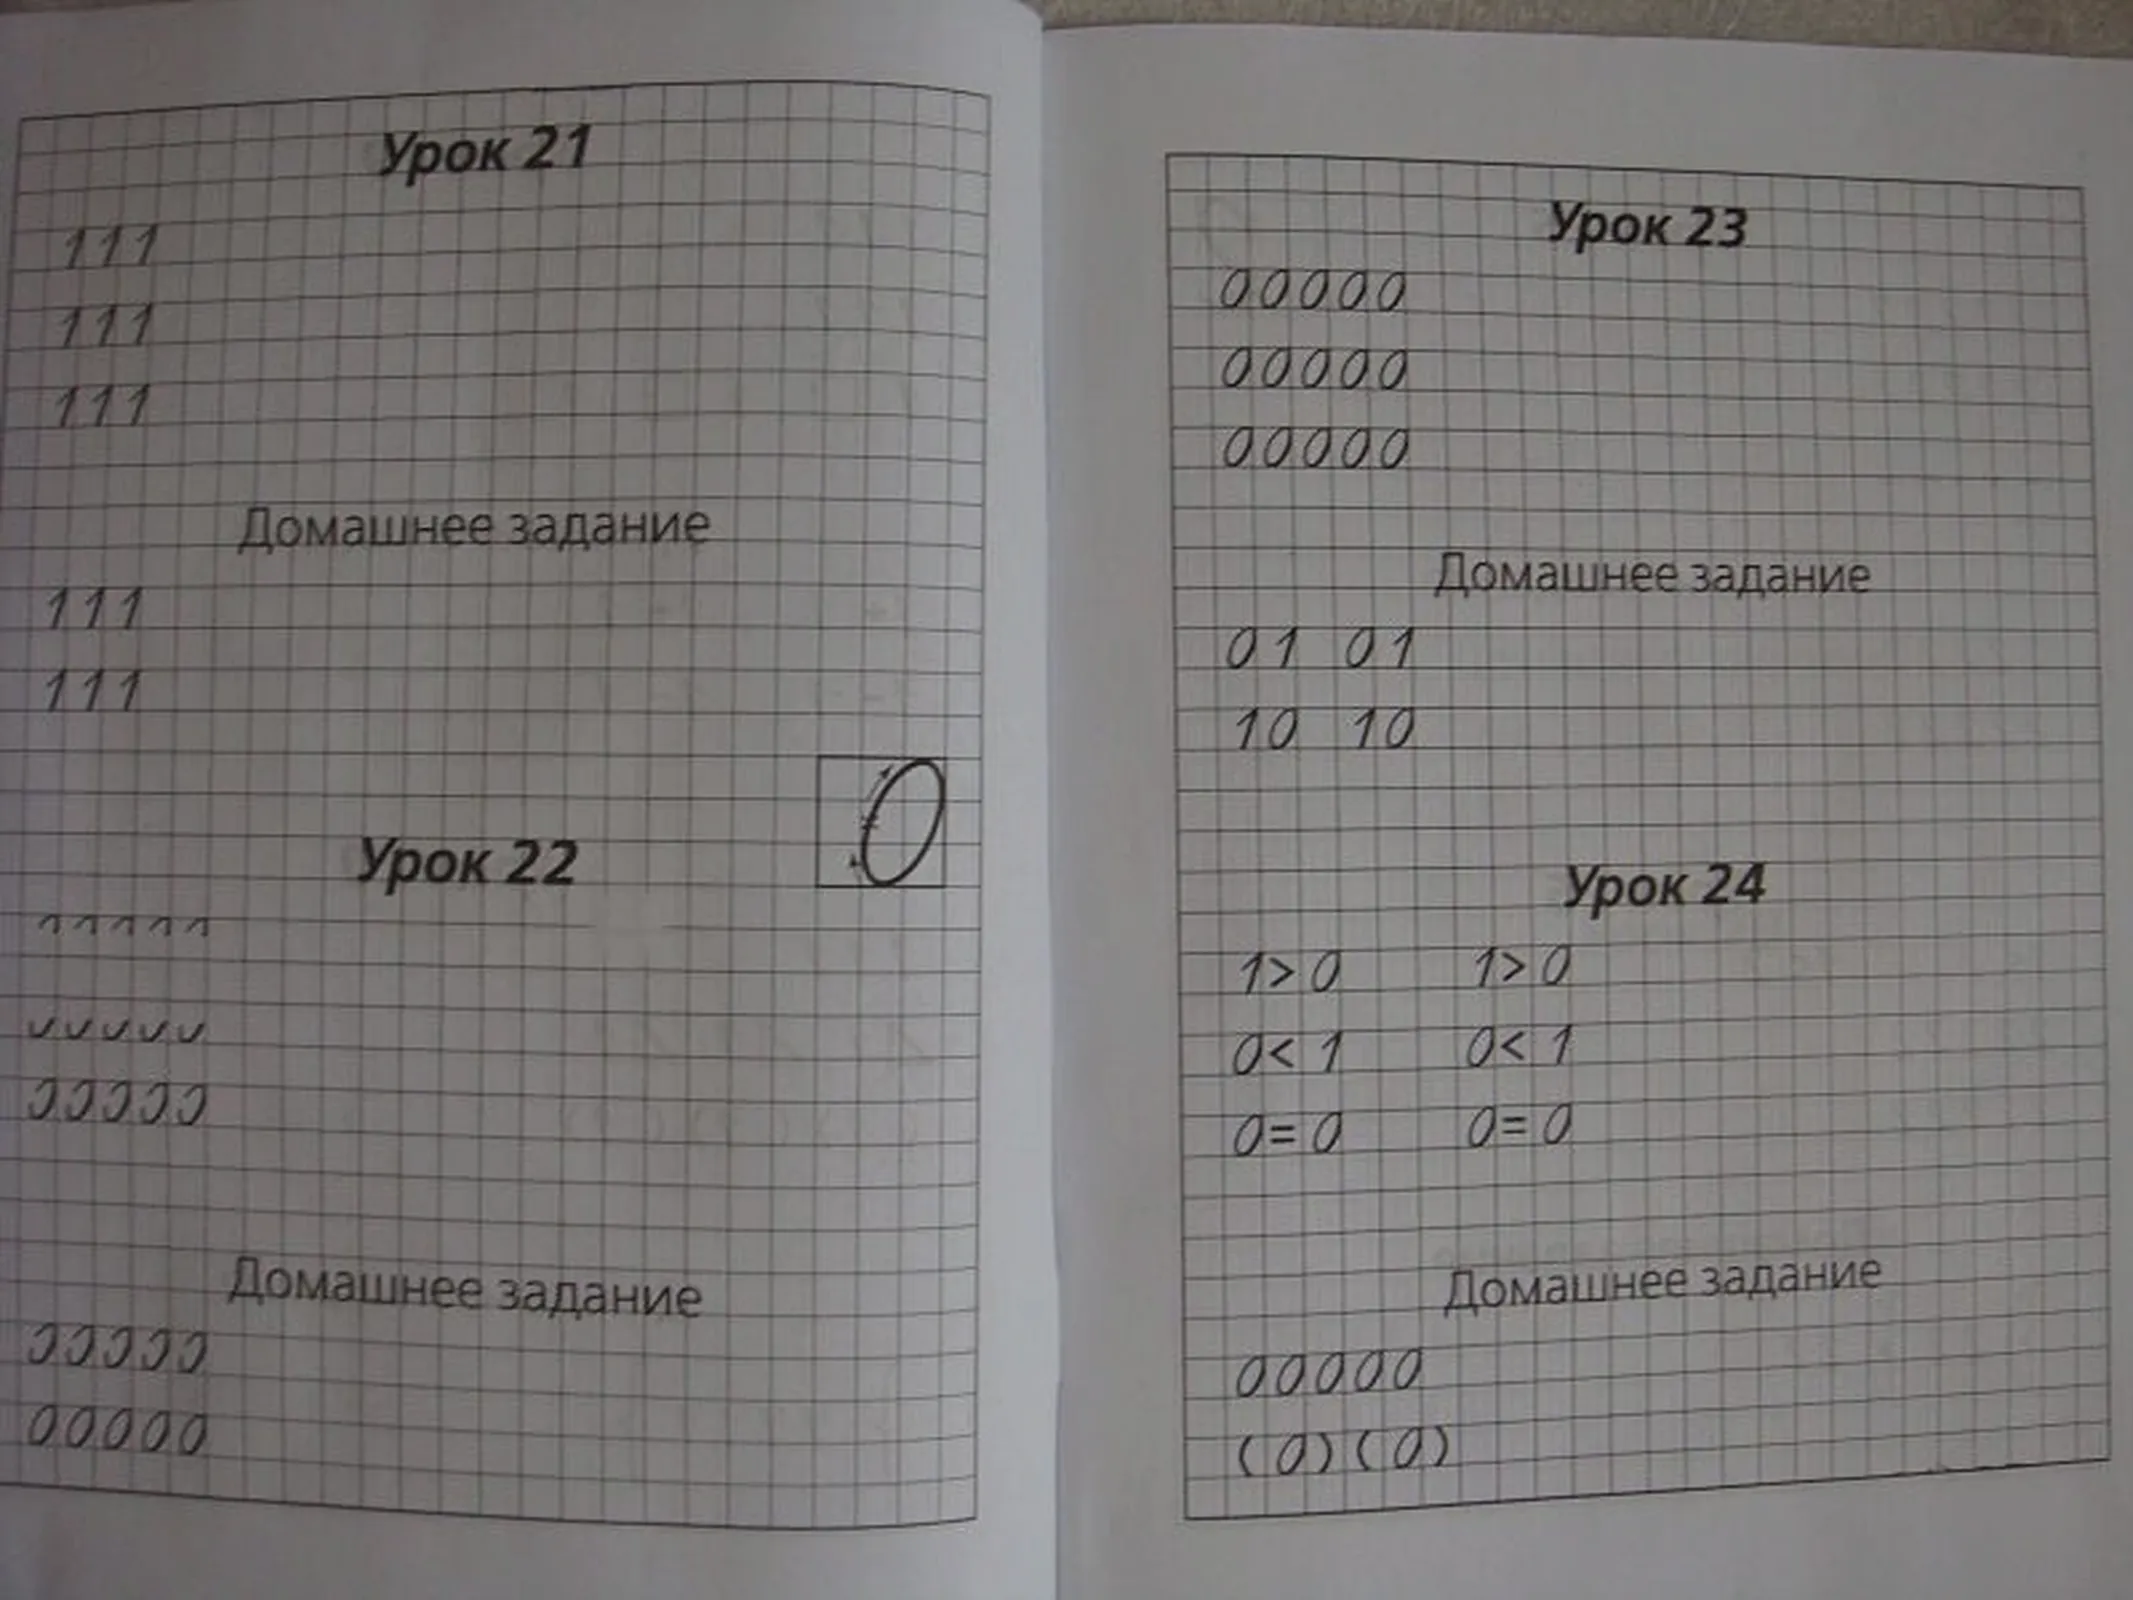 Урок 21
111
111
111
Домашнее задание
111
111
Урок 22
0
00000
Урок 23
00000
00000
00000
Домашнее задание
01 01
10 10
Урок 24
1>0 1>0
0<1 0<1
0=0 0=0
Домашнее задание
00000
(0)(0)